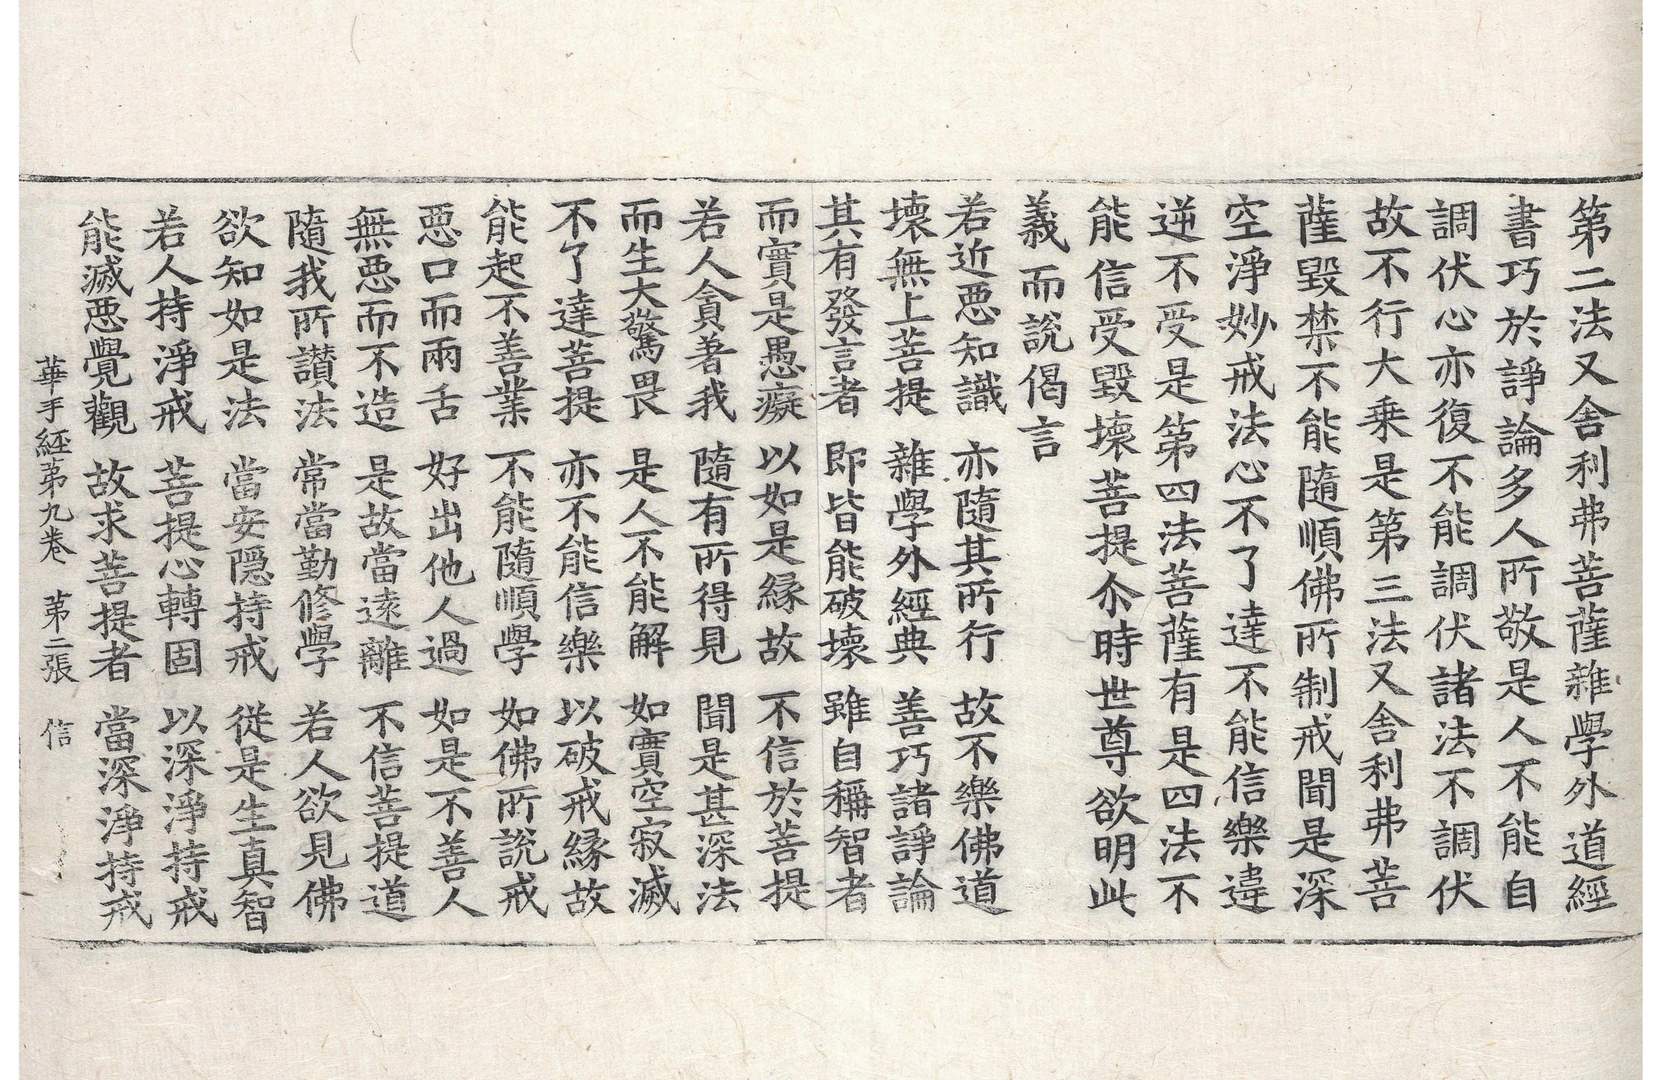 第二法又舍利弗菩薩雜學外道經
書巧於諍論多人所敬是人不能自
調伏心亦復不能調伏諸法不調伏
故不行大乗是第三法又舍利弗菩
薩毀禁不能隨順佛所制戒聞是深
空淨妙戒法心不了達不能信樂違
逆不受是第四法菩薩有是四法不
能信受毀壞菩提尒時世尊欲明此
義而說偈言
若近惡知識　亦隨其所行　故不樂佛道
壞無上菩提　雜學外經典　善巧諸諍論
其有發言者　即皆能破壞　雖自稱智者
而實是愚癡　以如是縁故　不信於菩提
若人貪著我　隨有所得見　聞是甚深法
而生大驚畏　是人不能解　如實空寂滅
不了達菩提　亦不能信樂　以破戒縁故
能起不善業　不能隨順學　如佛所說戒
惡口而兩舌　好出他人過　如是不善人
無惡而不造　是故當遠離　不信菩提道
隨我所讃法　常當勤修學　若人欲見佛
欲知如是法　當安隠持戒　從是生真智
若人持淨戒　菩提心轉固　以深淨持戒
能滅惡覺觀　故求菩提者　當深淨持戒
華手經第九卷　第二張　信